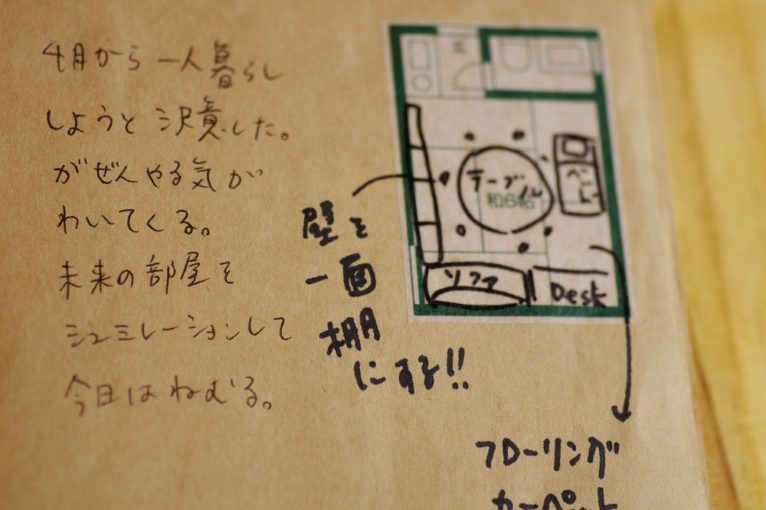 4月から一人暮らし
しようと決意した。
がぜんやる気が
わいてくる。
未来の部屋を
シュミレーションして
今日はねむる。
玄
テーブル
和6帖
ベッド
ソファ
Desk
壁を
一面
棚
にする!!
フローリング
カーペット